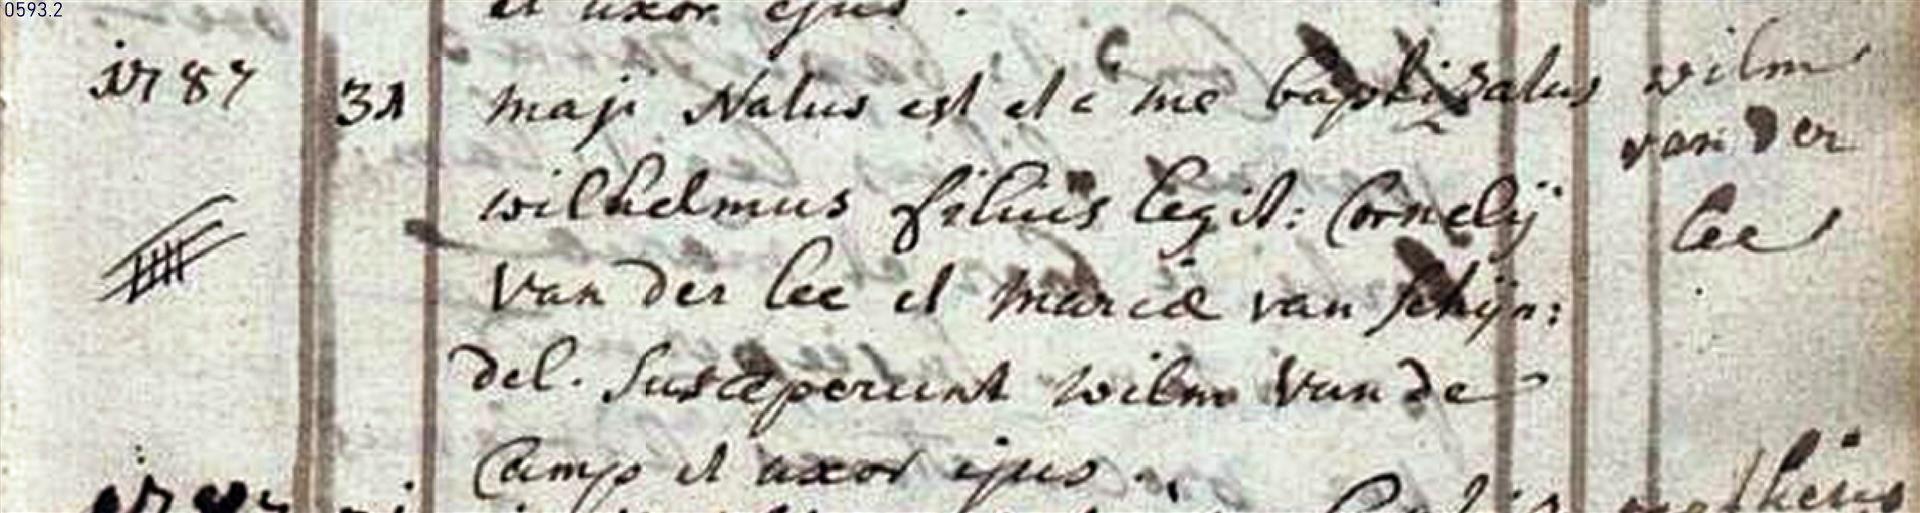 0593.2
et uxor ejus.
1787 31 maji Natus est et a me baptizatus wilm
van der
wilhelmus filius legit: Cornelij
lee
Van der lee et mariæ van schijn:
del. Susceperunt wilm Van de
Camp et uxor ejus.